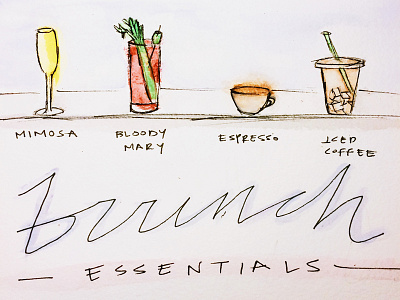 MIMOSA
BLOODY
MARY
ESPRESSO
ICED
COFFEE
brunch
ESSENTIALS